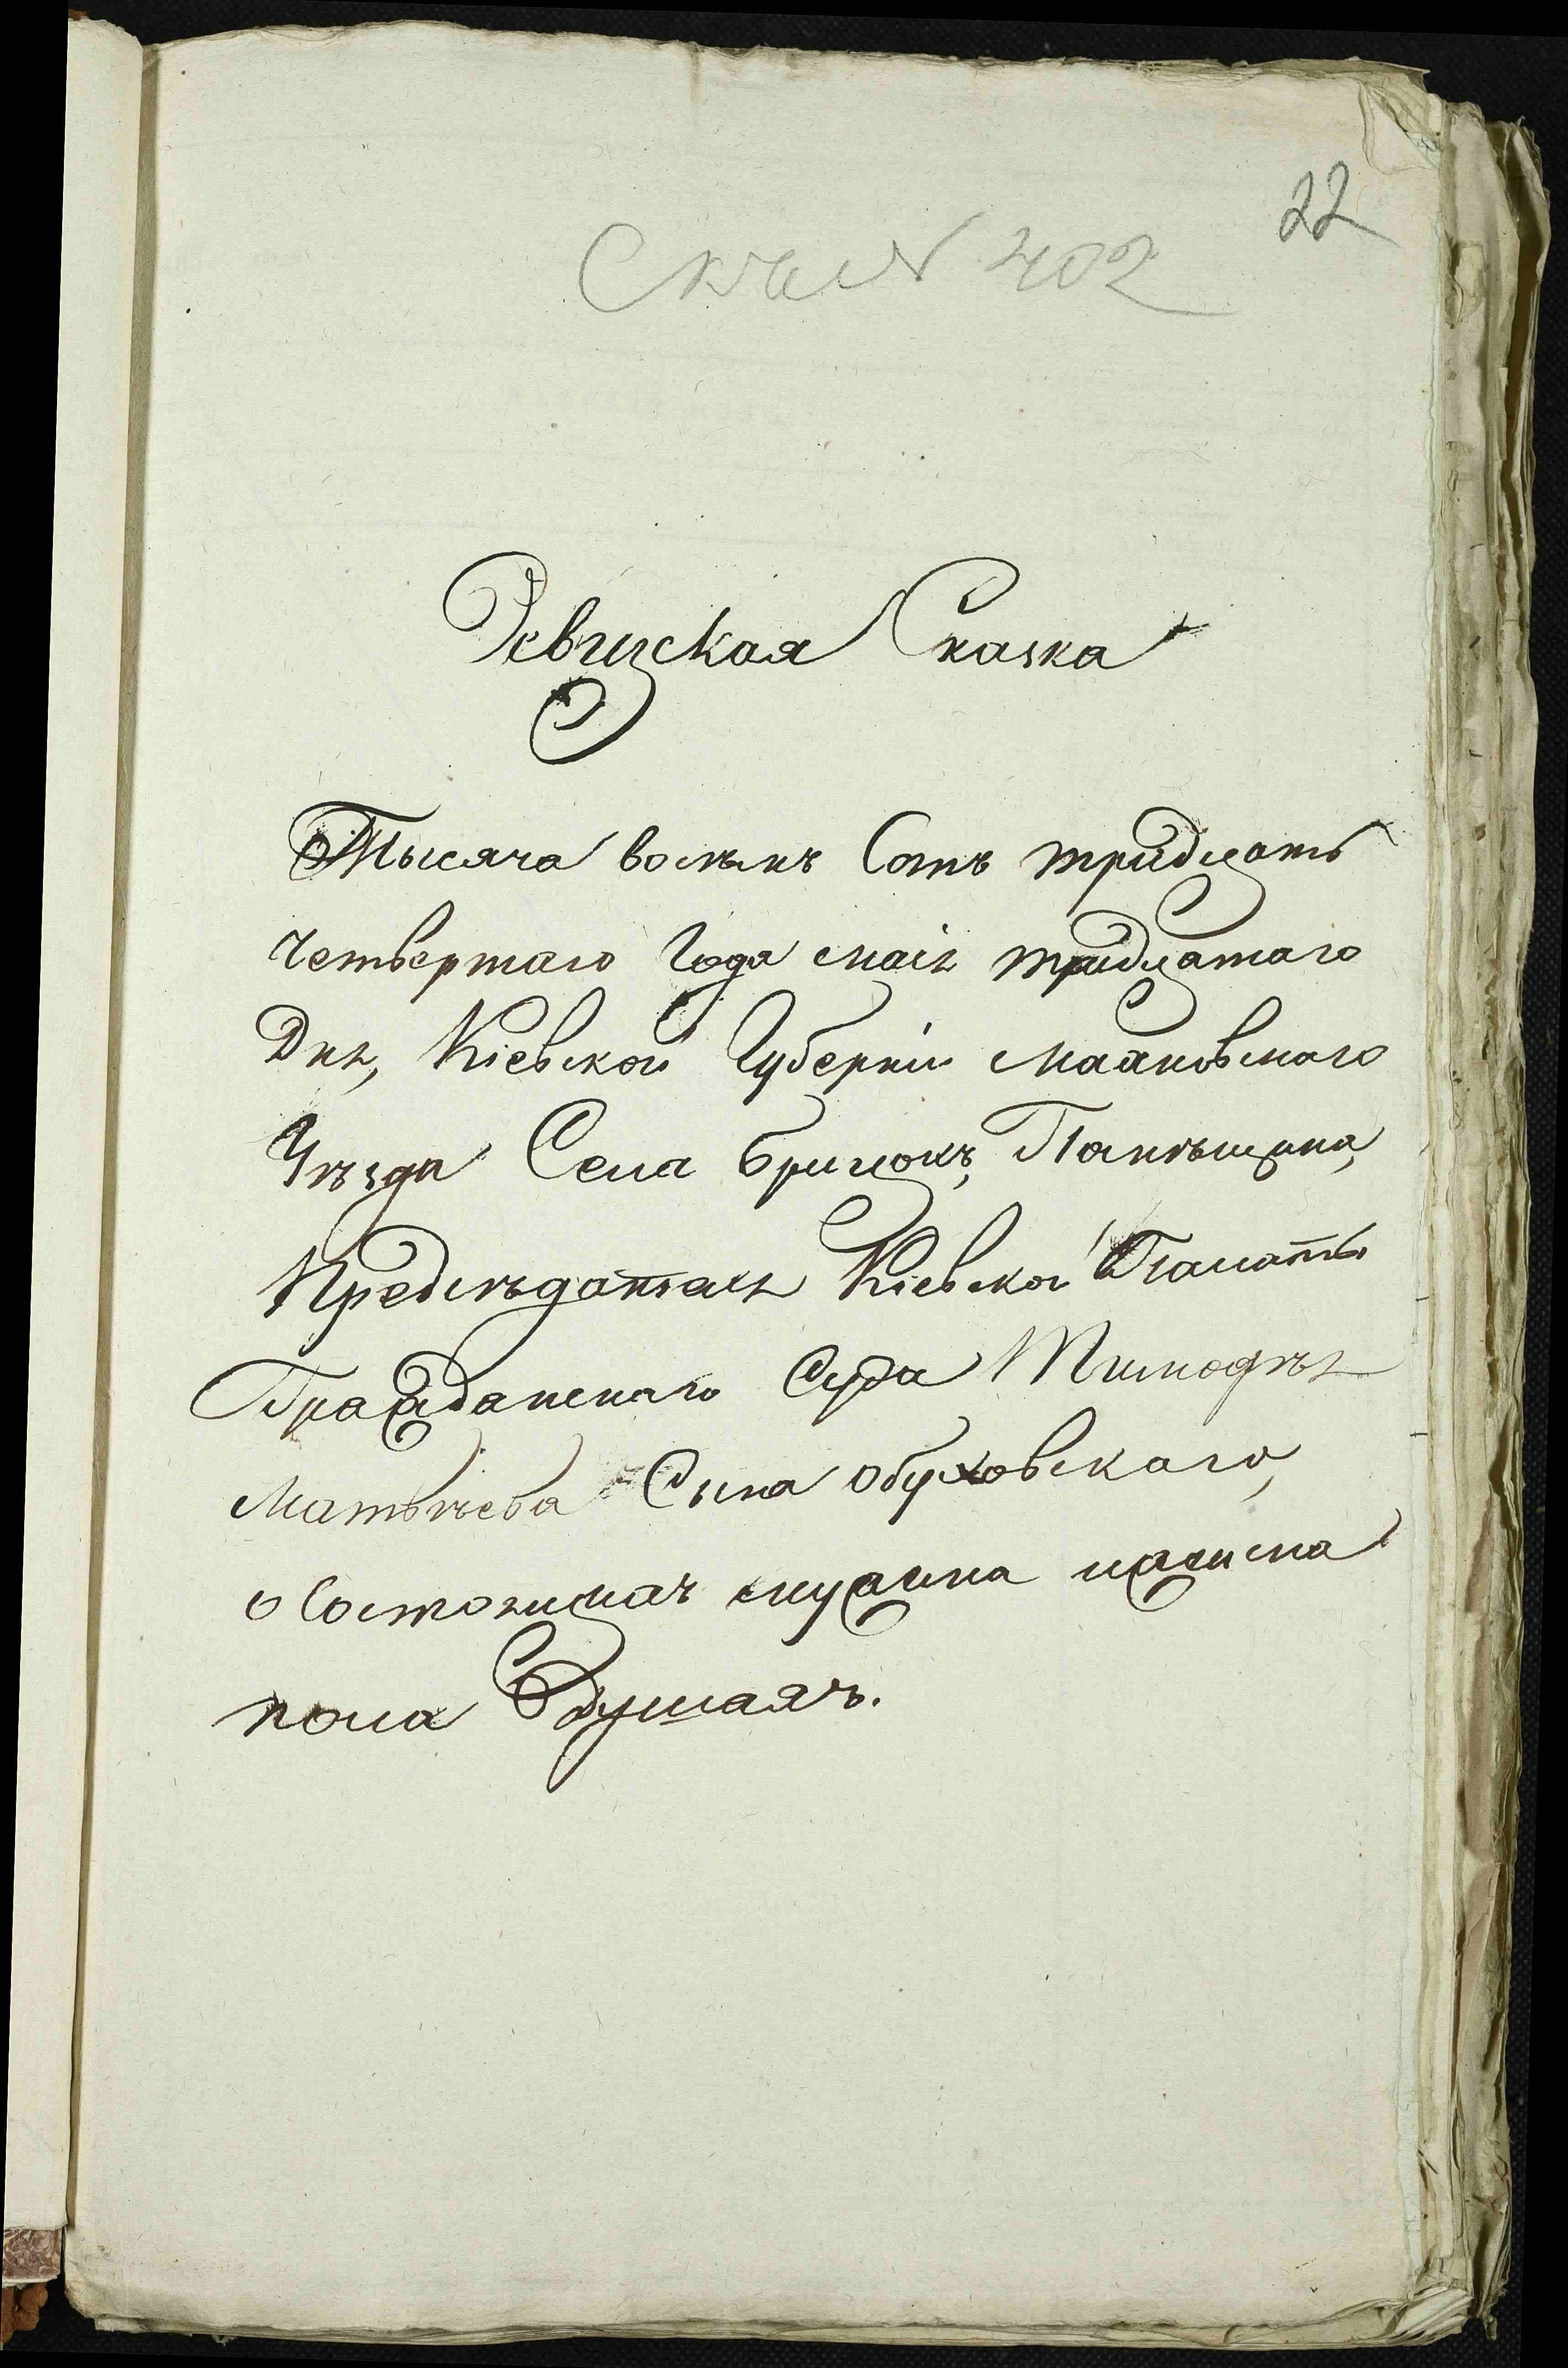 22
№ 402
Ревизская Сказка
Тысяча восемъ Сотъ тридцать
четвертаго Года маія тридцатаго
Дня, Кіевской Губерніи
Уѣзда Села Помѣщика,
Предсѣдателя Кіевской Палаты
Гражданскаго Суда Тимофѣя
Матвѣева Сына Обуховскаго,
о Состоящихъ мужеска и женска
пола Душахъ.